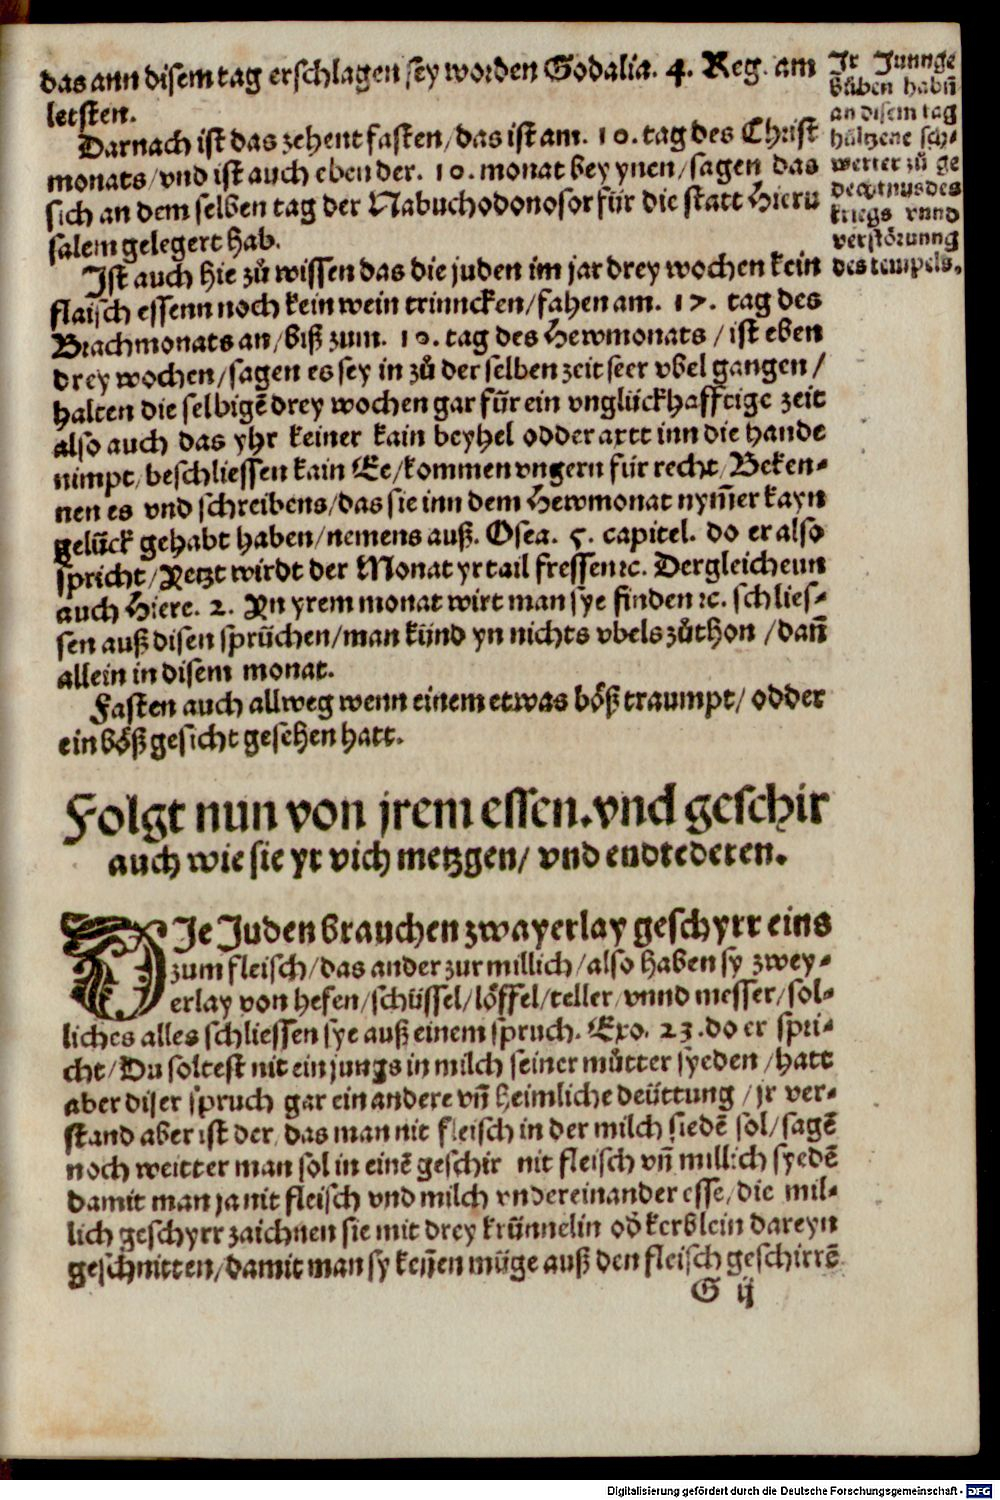 das ann disem tag erschlagen sey worden Godalia. 4. Reg. am
letsten.
Darnach ist das zehent fasten/das ist am. 10. tag des Christ
monats/vnd ist auch eben der. 10. monat bey ynen/sagen das
sich an dem selben tag der Nabuchodonosor für die statt Hieru
salem gelegert hab.
Jr Junnge
bůben habñ
an disem tag
hültzene sch-
werter zů ge
dechtnus des
kriegs vnnd
verstörunng
des tempels.
Ist auch hie zů wissen das die juden im jar drey wochen kein
flaisch essenn noch kein wein trinncken/fahen am. 17. tag des
Brachmonats an/biß zum. 10. tag des Hewmonats / ist eben
drey wochen/sagen es sey in zů der selben zeit seer vbel gangen /
halten die selbigẽ drey wochen gar für ein vnglückhafftige zeit
also auch das yhr keiner kain beyhel odder axtt inn die hande
nimpt/beschliessen kain Ee/kommen vngern für recht/Beken-
nen es vnd schreibens/das sie inn dem Hewmonat nym̃er kayn
gelück gehabt haben/nemens auß. Osea. 5. capitel. do er also
spricht/Yetzt wirdt der Monat yr tail fressen ꝛc. Dergleichenn
auch Hiere. 2. Yn yrem monat wirt man sye finden ꝛc. schlies-
sen auß disen sprüchen/man künd yn nichts vbels zůthon /dañ
allein in disem monat.
Fasten auch allweg wenn einem etwas böß traumpt/ odder
ein böß gesicht gesehen hatt.
Folgt nun von jrem essen.vnd geschir
auch wie sie yr vich metzgen/ vnd endtederen.
DIe Juden brauchen zwayerlay geschyrr eins
zum fleisch/das ander zur millich/also haben sy zwey-
erlay von hefen/schüssel/löffel/teller/vnnd messer/sol-
liches alles schliessen sye auß einem spruch. Exo. 23. do er spri-
cht/Du soltest nit ein jungs in milch seiner můtter syeden /hatt
aber diser spruch gar ein andere vñ heimliche deüttung /jr ver-
stand aber ist der/das man nit fleisch in der milch siedẽ sol/sagẽ
noch weitter man sol in einẽ geschir nit fleisch vñ millich syedẽ
damit man ja nit fleisch vnd milch vndereinander esse/die mil-
lich geschyrr zaichnen sie mit drey krünnelin od̓ kerblein dareyn
geschnitten/damit man sy keñen müge auß den fleisch geschirrẽ
G ij
Digitalisierung gefördert durch die Deutsche Forschungsgemeinschaft - DFG